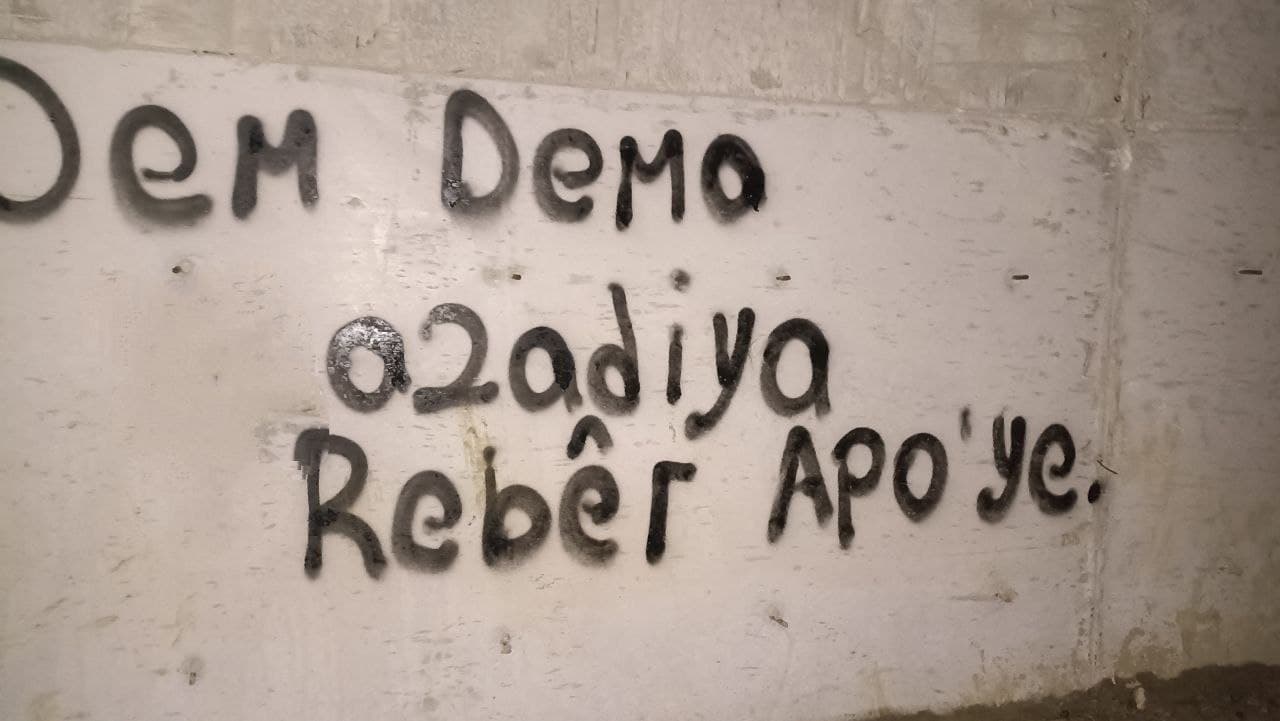 Dem Dema
azadiya
Rebêr Apo'ye.